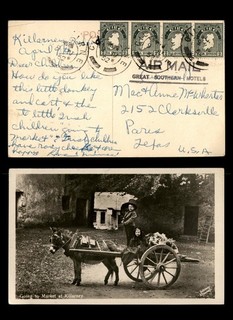 Killarney
April 9
Dear Children
How do you like
this little donkey
and cart & the
to little Irish
children going to
market
have rosy cheeks
AIR MAIL
GREAT SOUTHERN HOTELS
Mac & Anne McWherter
2152 Clarksville
Paris
Texas U.S.A.
Going to Market at Killarney